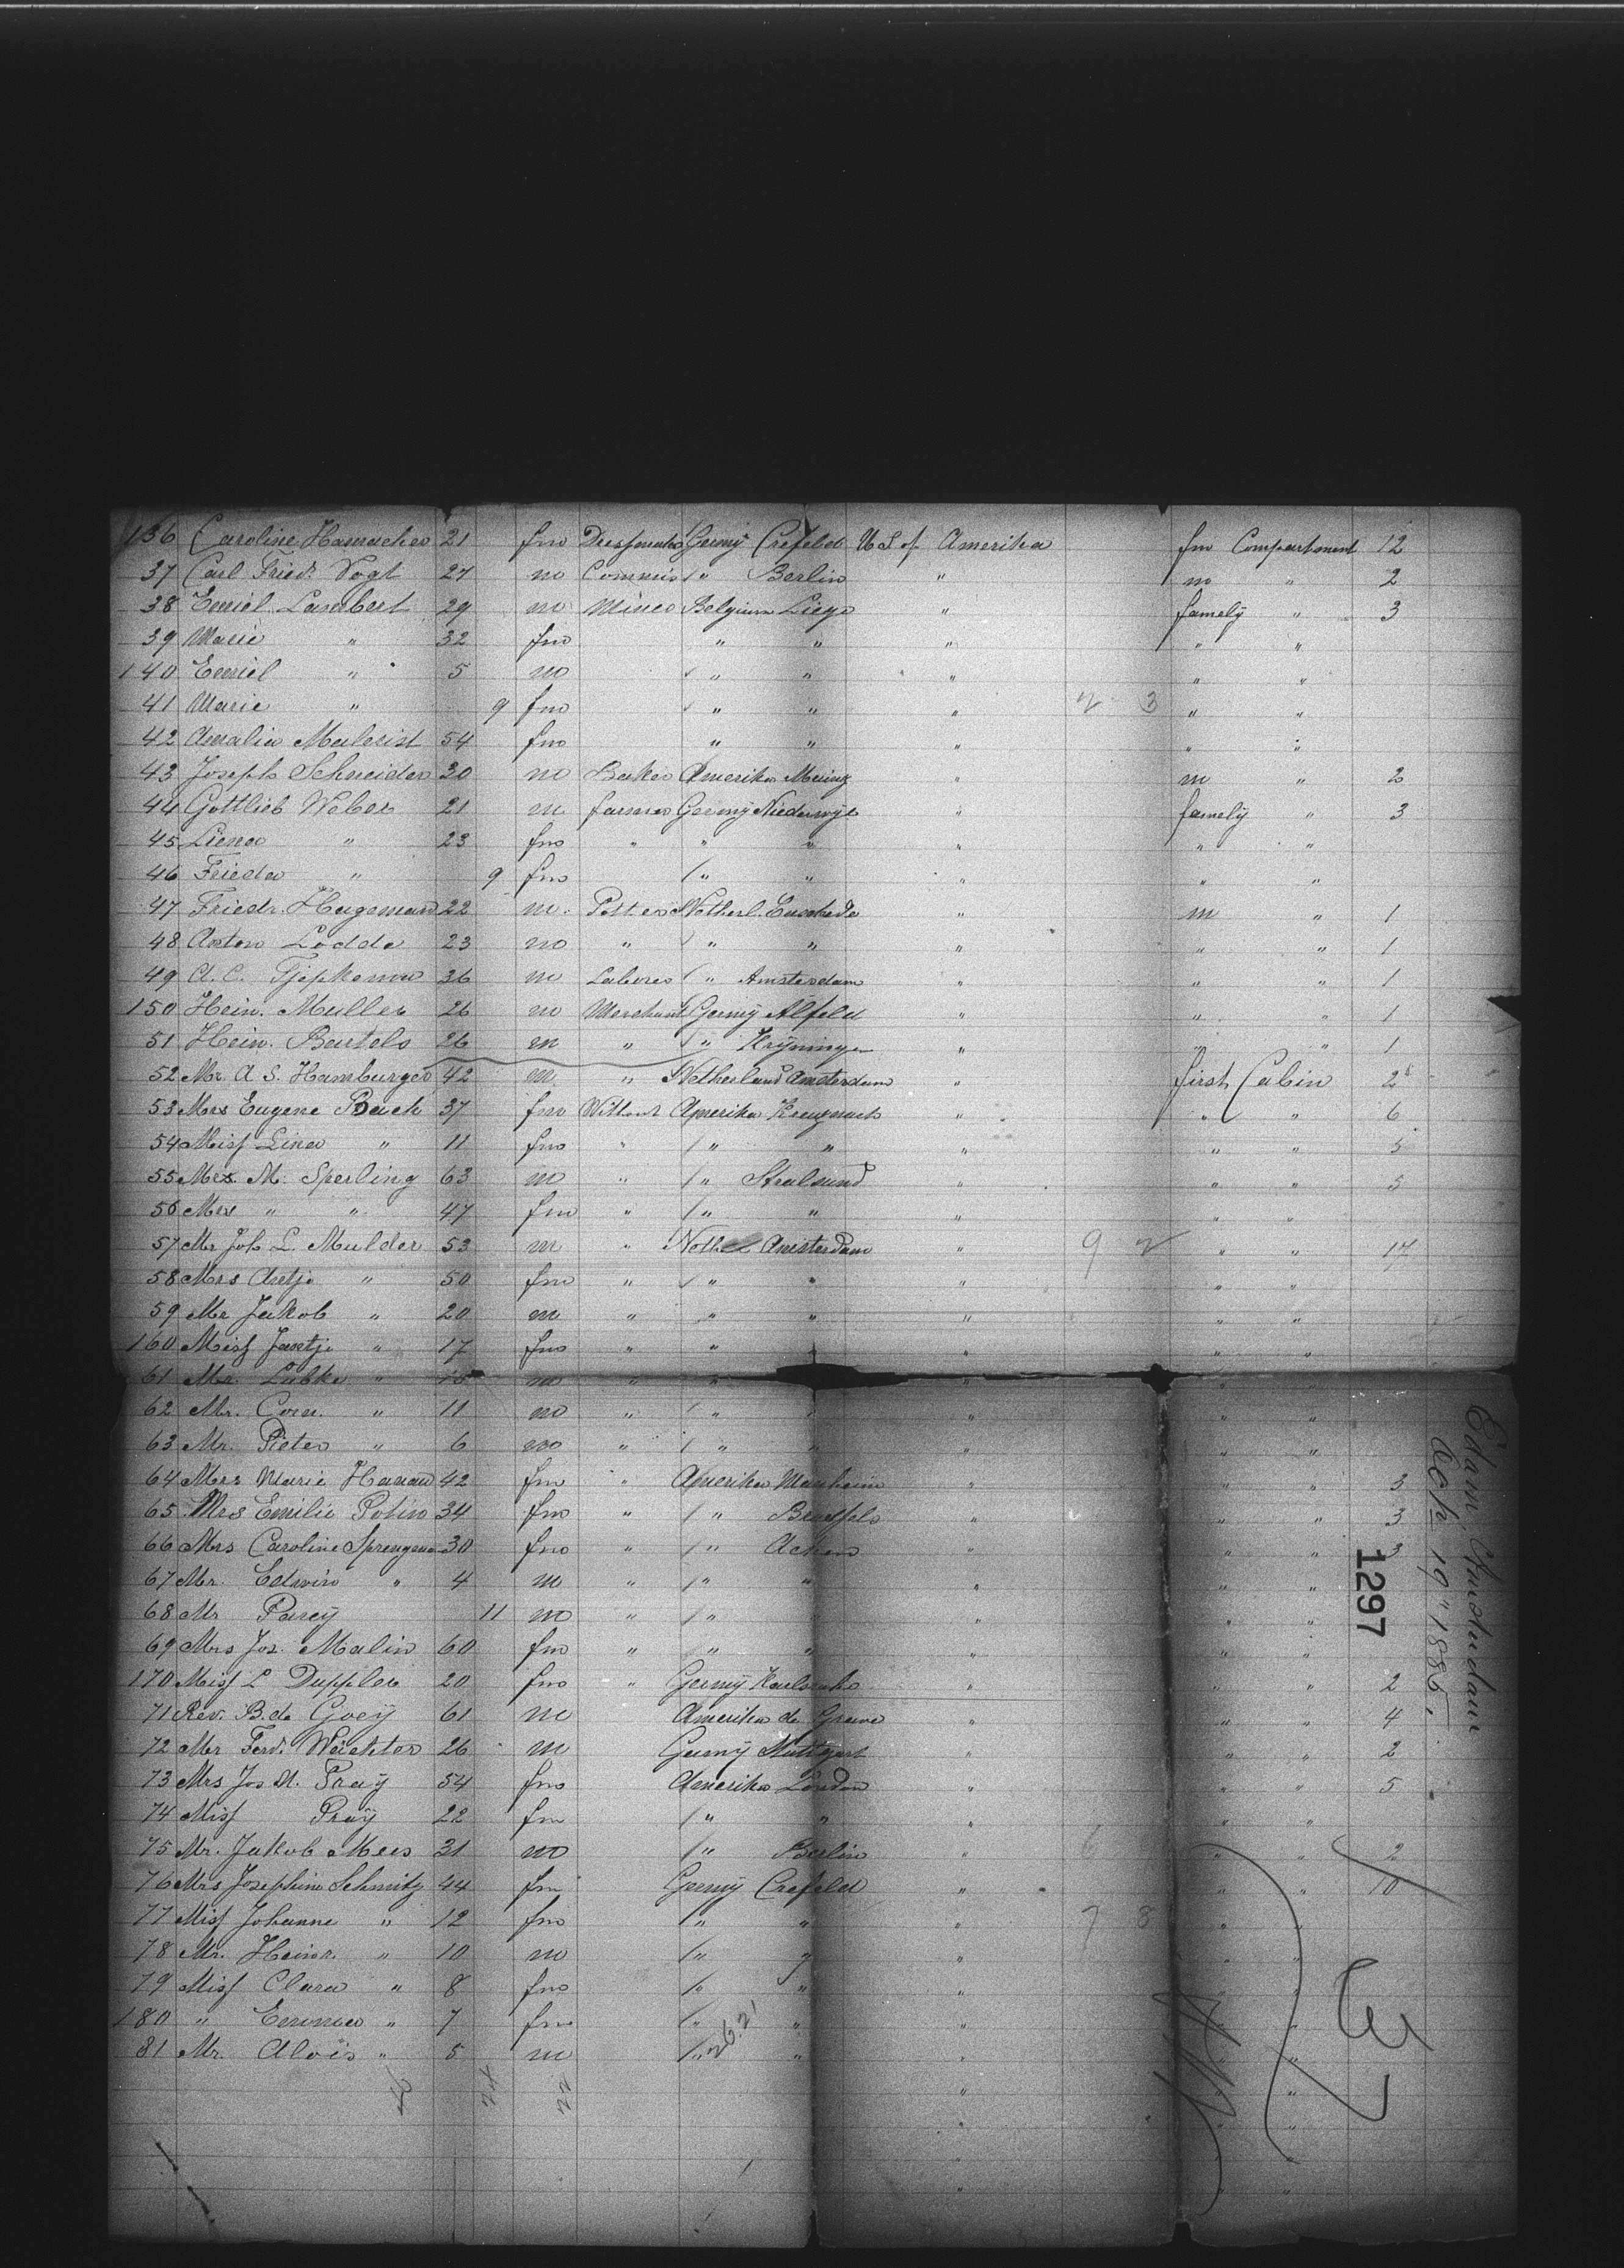 136 Caroline Hamacher 21 fm Germy Crefeld U S of Amerika fm Compartment 12
37 Carl Fried. Vogt 27 m Commis " Berlin " m " 2
38 Emiel Lambert 29 m Miner Belgium Liege " famely " 3
39 Marie " 32 fm " " " " "
140 Emiel " 5 m " " " " "
41 Marie " 9 fm " " " 2 3 " "
42 Amalia 54 fm " " " " "
43 Joseph Schneider 30 m Baker Amerika " m " 2
44 Gottlieb Weber 21 m farmer Germy " famely " 3
45 23 fm " " " " " "
46 Frieda " 9 fm " " " " "
47 Friedr. Hageman 22 m. Netherl. Enschede " m " 1
48 Anton Lodde 23 m " " " " " " 1
49 A. C. 36 m Laborer " Amsterdam " " " 1
150 Hein. Muller 26 m Merchant Germy Alfeld " " " 1
51 Hein. Bartels 26 m " " " " " 1
52 Mr. A S. Hamburger 42 m " Netherland Amsterdam " first Cabin 2
53 Mrs Eugene Bach 37 fm Without Amerika Kreuznach " " " 6
54 Miss Lina " 11 fm " " " " " " 5
55 Mr. M. Sperling 63 m " " Stralsund " " " 5
56 Mrs " " 47 fm " " " " " "
57 Mr Joh L. Mulder 53 m " Amsterdam " 9 2 " " 17
58 Mrs Antje " 50 fm " " " " " "
59 Mr Jakob " 20 m " " " " " "
160 Miss Jantje " 17 fm " " " " "
61 Mr. Lubke " m " " " "
62 Mr. Corn. " 11 m " " " " "
63 Mr. Pieter " 6 m " " " " " "
64 Mrs Marie Hanau 42 fm " Amerika Manheim " " " 3
65 Mrs Emilie Potin 34 fm " " Brussels " " " 3
66 Mrs Caroline 30 fm " " Acken " " " 3
67 Mr. Edwin " 4 m " " " " " "
68 Mr Parcy 11 m " " " " " "
69 Mrs Jos. Malin 60 fm " " " " " "
170 Miss L Duppler 20 fm " Germy Karlsruhe " " " 2
71 Rev. B. de Goey 61 m Amerika de Grave " " " 4
72 Mr Ferd. 26 m Germy Stuttgart " " " 2
73 Mrs Jos M. Pray 54 fm Amerika London " " " 5
74 Miss Pray 22 fm " " " " "
75 Mr. Jakob Mees 31 m " Berlin " 6 " " 2
76 Mrs Josephine Schmitz 44 fm Germy Crefeld " " " 10
77 Miss Johanne " 12 fm " " " 7 8 " "
78 Mr. Heinr. " 10 m " " " " "
79 Miss Clara " 8 fm " " " " "
180 " Emma " 7 fm " " " " "
81 Mr. Alois " 5 m " " " " "
Edam, Amsterdam
Oct 19" 1885.
1297
37